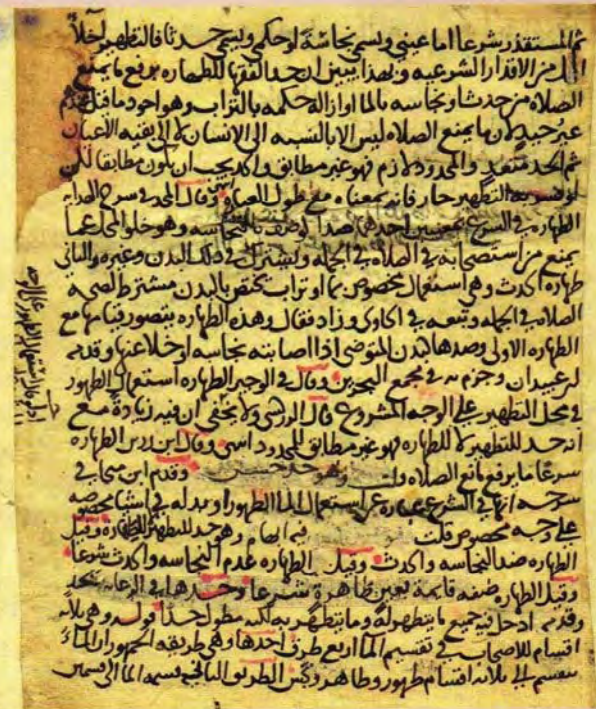 ثم المستقذر شرعا اما عيني ويسمى نجاسة او حكمي ويسمى حدثا فالتطهير اخلاء
المحل من الاقذار الشرعيه وبهذا يتبين ان حد الفقها للطهاره برفع ما يمنع
الصلاه من حدث او نجاسه بالما او ازالة حكمه بالتراب وهو اجود ما قيل عندهم
غير جيد لان ما يمنع الصلاه ليس الا بالنسبه الى الانسان لا الى بقيه الاعيان
ثم الحد متعد والمحدود لازم فهو غير مطابق والحد يجب ان يكون مطابقا لكن
لو فسر به التطهير جاز فانه بمعناه مع طول العباره انتهى وقال المجد في شرح الهدايه
الطهاره في الشرع بمعنيين احدهما ضد الوصف بالنجاسه وهو خلو المحل عما
يمنع من استصحابه في الصلاه في الجمله ويشترك في ذلك البدن وغيره والثاني
طهاره الحدث وهي استعمال مخصوص بما او تراب يختص بالبدن مشترط لصحه
الصلاه في الجمله وتبعه في الحاوي وزاد فقال وهذه الطهاره يتصور قيامها مع
الطهاره الاولى وضدها كبدن المتوضي اذا اصابته نجاسه او خلا عنها وقدمه
ابن عبيدان وجزم به في مجمع البحرين وقال في الوجيز الطهاره استعمال الطهور
في محل التطهير على الوجه المشروع قال الزركشي ولا يخفى ان فيه زيادة مع
انه حد للتطهير لا للطهاره فهو غير مطابق للمحدود انتهى وقال ابن رزين الطهاره
شرعا ما يرفع مانع الصلاه وهو حد حسن وقدم ابن منجا في
شرحه انها في الشرع عباره عن استعمال الما الطهور او بدله في اشيا مخصوصه
على وجه مخصوص قلت فيه ابهام وهو حد للتطهير لا للطهاره وقيل
الطهاره ضد النجاسه والحدث وقيل الطهاره عدم النجاسه والحدث شرعا
وقيل الطهاره صفه قايمة بعين طاهرة شرعا وحدها في الرعايه بحد
وقدمه ادخل فيه جميع ما يتطهر له وما يتطهر به لكنه مطول جدا قوله وهي ثلاثه
اقسام للاصحاب في تقسيم الما اربع طرق احدها وهي طريقه الجمهور ان الماء
ينقسم الى ثلاثه اقسام طهور وطاهر ونجس الطريق الثاني تقسيمه الما الى قسمين